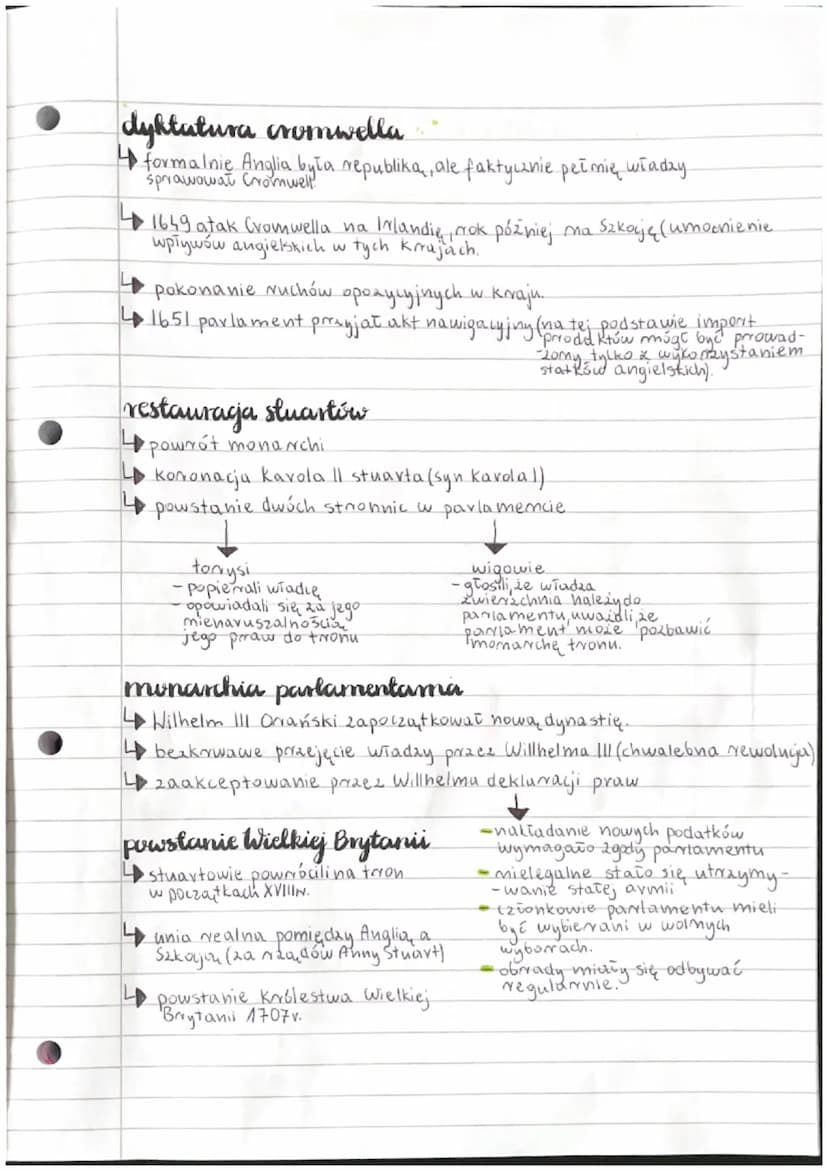 dyktatura cromwella
↳ formalnie Anglia była republiką, ale faktycznie pełnię władzy
sprawował Cromwell
↳ 1649 atak Cromwella na Irlandię, rok później na Szkocję (umocnienie
wpływów angielskich w tych krajach.
↳ pokonanie ruchów opozycyjnych w kraju.
↳ 1651 parlament przyjął akt nawigacyjny (na tej podstawie import
produktów mógł być prowad-
-zony tylko z wykorzystaniem
statków angielskich).
restauracja stuartów
↳ powrót monarchi
↳ koronacja Karola II stuarta (syn Karola I)
↳ powstanie dwóch stronnic w parlamencie
torysi
- popierali władcę
- opowiadali się za jego
nienaruszalnością
jego praw do tronu
wigowie
- głosili, że władza
zwierzchnia należy do
parlamentu, uważali, że
parlament może pozbawić
monarchę tronu.
monarchia parlamentarna
↳ Wilhelm III Orański zapoczątkował nową dynastię.
↳ bezkrwawe przejęcie władzy przez Willhelma III (chwalebna rewolucja)
↳ zaakceptowanie przez Willhelma deklaracji praw
- nakładanie nowych podatków
wymagało zgody parlamentu
- nielegalne stało się utrzymy-
- wanie stałej armii
- członkowie parlamentu mieli
być wybierani w wolnych
wyborach.
- obrady miały się odbywać
regularnie.
powstanie Wielkiej Brytanii
↳ stuartowie powrócili na tron
w początkach XVIIIw.
↳ unia realna pomiędzy Anglią a
Szkocją (za rządów Anny Stuart)
↳ powstanie Królestwa Wielkiej
Brytanii 1707r.